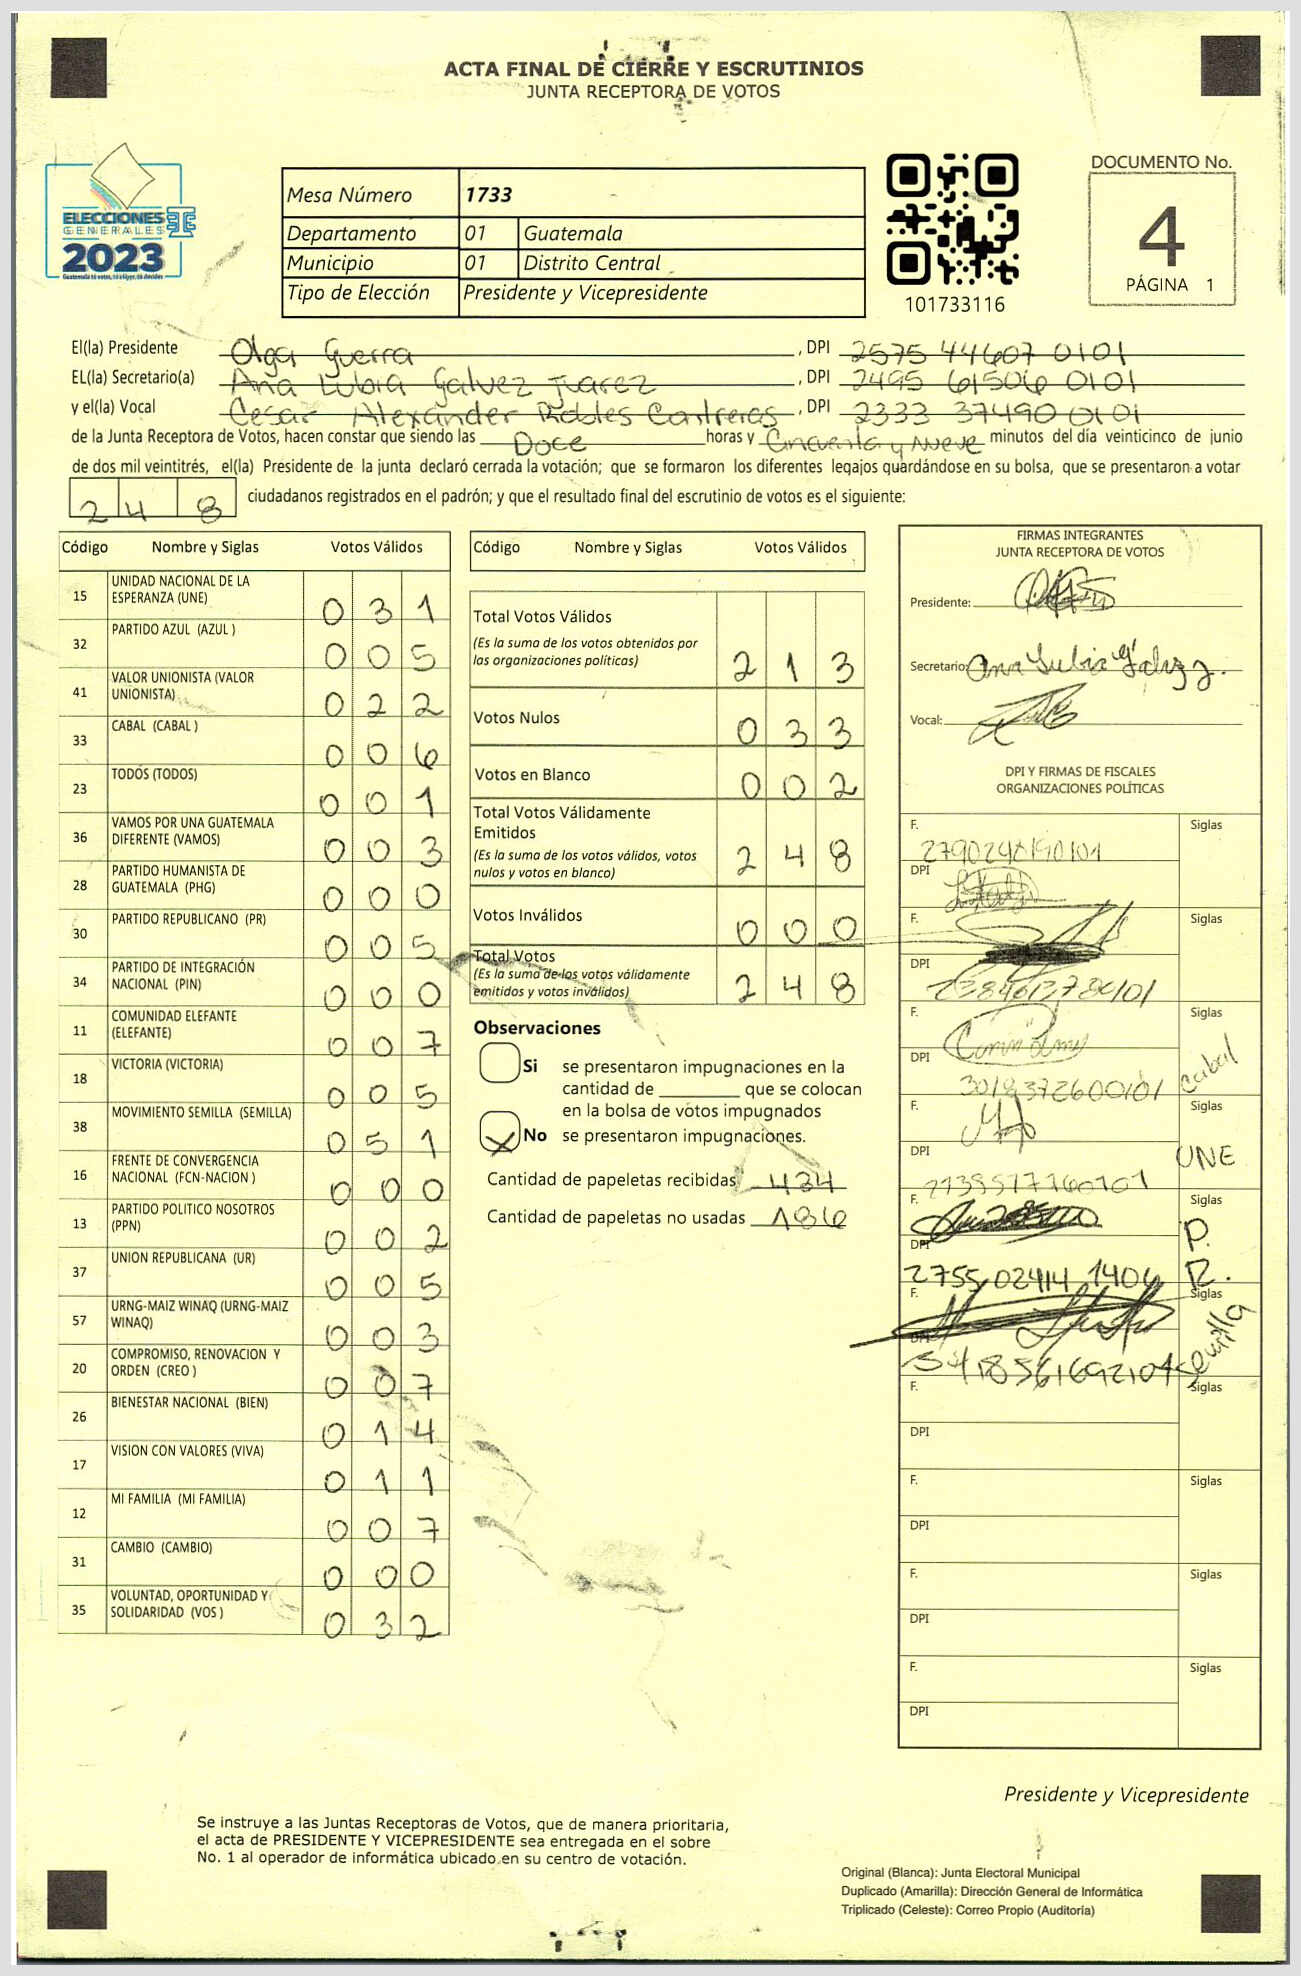 ACTA FINAL DE CIERRE Y ESCRUTINIOS
JUNTA RECEPTORA DE VOTOS
ELECCIONES
GENERALES
2023
Mesa Número 1733
Departamento 01 Guatemala
Municipio 01 Distrito Central
Tipo de Elección Presidente y Vicepresidente
101733116
DOCUMENTO No.
4
PÁGINA 1
El(la) Presidente Olga Guerra, DPI 2575 44607 0101
EL(la) Secretario(a) Ana Lubia Galvez Juarez, DPI 2495 61506 0101
y el(la) Vocal Cesar Alexander Robles Contreras, DPI 2333 37490 0101
de la Junta Receptora de Votos, hacen constar que siendo las Doce horas y Cincuenta y Nueve minutos del día veinticinco de junio
de dos mil veintitrés, el(la) Presidente de la junta declaró cerrada la votación; que se formaron los diferentes legajos guardándose en su bolsa, que se presentaron a votar
248 ciudadanos registrados en el padrón; y que el resultado final del escrutinio de votos es el siguiente:
Código Nombre y Siglas Votos Válidos
15 UNIDAD NACIONAL DE LA ESPERANZA (UNE) 031
32 PARTIDO AZUL (AZUL ) 005
41 VALOR UNIONISTA (VALOR UNIONISTA) 022
33 CABAL (CABAL ) 006
23 TODOS (TODOS) 001
36 VAMOS POR UNA GUATEMALA DIFERENTE (VAMOS) 003
28 PARTIDO HUMANISTA DE GUATEMALA (PHG) 000
30 PARTIDO REPUBLICANO (PR) 005
34 PARTIDO DE INTEGRACIÓN NACIONAL (PIN) 000
11 COMUNIDAD ELEFANTE (ELEFANTE) 007
18 VICTORIA (VICTORIA) 005
38 MOVIMIENTO SEMILLA (SEMILLA) 051
16 FRENTE DE CONVERGENCIA NACIONAL (FCN-NACION ) 000
13 PARTIDO POLITICO NOSOTROS (PPN) 002
37 UNION REPUBLICANA (UR) 005
57 URNG-MAIZ WINAQ (URNG-MAIZ WINAQ) 003
20 COMPROMISO, RENOVACION Y ORDEN (CREO ) 007
26 BIENESTAR NACIONAL (BIEN) 014
17 VISION CON VALORES (VIVA) 011
12 MI FAMILIA (MI FAMILIA) 007
31 CAMBIO (CAMBIO) 000
35 VOLUNTAD, OPORTUNIDAD Y SOLIDARIDAD (VOS ) 032
Código Nombre y Siglas Votos Válidos
Total Votos Válidos
(Es la suma de los votos obtenidos por
las organizaciones políticas) 213
Votos Nulos 033
Votos en Blanco 002
Total Votos Válidamente
Emitidos
(Es la suma de los votos válidos, votos
nulos y votos en blanco) 248
Votos Inválidos 000
Total Votos
(Es la suma de los votos válidamente
emitidos y votos inválidos) 248
Observaciones
Si se presentaron impugnaciones en la
cantidad de ________ que se colocan
en la bolsa de votos impugnados
X No se presentaron impugnaciones.
Cantidad de papeletas recibidas 434
Cantidad de papeletas no usadas 186
FIRMAS INTEGRANTES
JUNTA RECEPTORA DE VOTOS
Presidente:
Secretario: Ana Lubia Galvez J.
Vocal:
DPI Y FIRMAS DE FISCALES
ORGANIZACIONES POLÍTICAS
F. Siglas
DPI
F. Siglas
DPI
F. Siglas
DPI Cabal
3018372600101
F. Siglas
DPI UNE
F. Siglas
DPI P.
2755 02414 1406 R.
F. Siglas
DPI Semilla
F. Siglas
DPI
F. Siglas
DPI
F. Siglas
DPI
F. Siglas
DPI
Presidente y Vicepresidente
Se instruye a las Juntas Receptoras de Votos, que de manera prioritaria,
el acta de PRESIDENTE Y VICEPRESIDENTE sea entregada en el sobre
No. 1 al operador de informática ubicado en su centro de votación.
Original (Blanca): Junta Electoral Municipal
Duplicado (Amarilla): Dirección General de Informática
Triplicado (Celeste): Correo Propio (Auditoría)